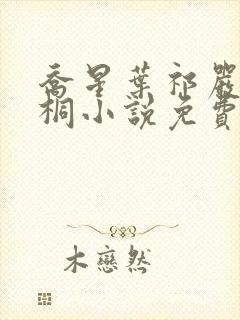 喬星葉祁嚴
桐小說免費
木戀然